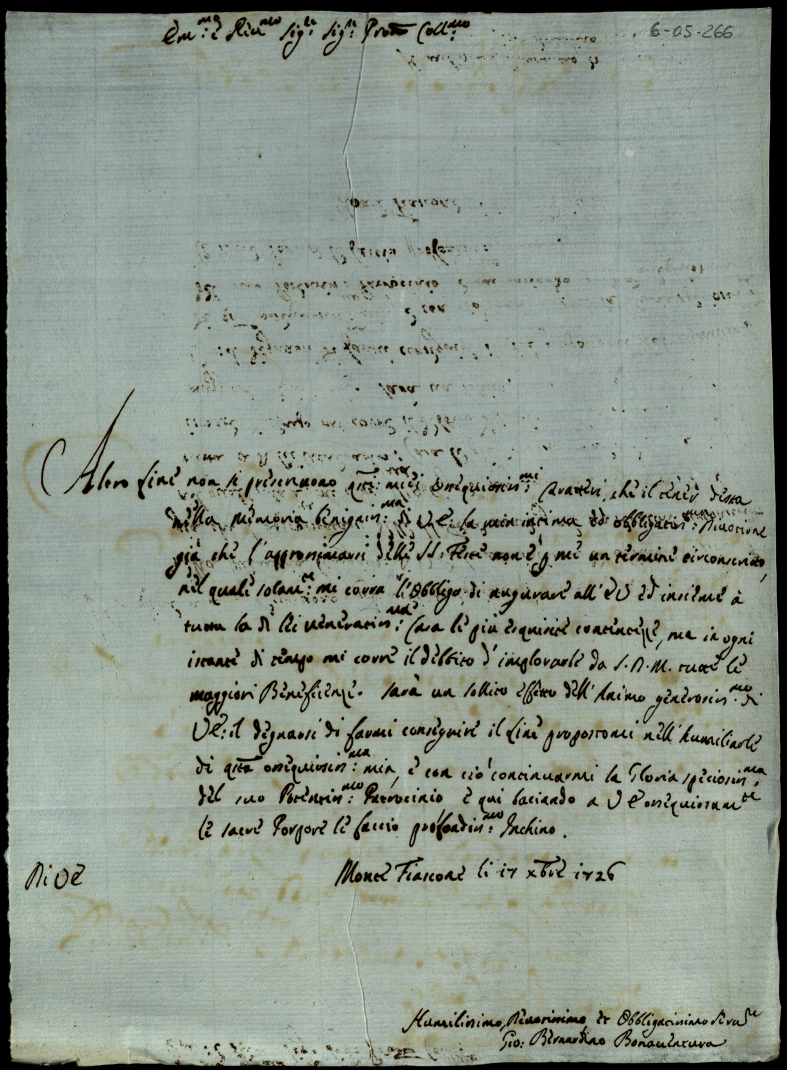 6-05-266
Em:mo e Rev:mo Sig:re Sig:re Prone Coll:mo
Altro fine non si prescrivono q:ti miei ossequiosiss:mi caratteri, che il tener desta
nella memoria benigniss:ma di VE: la mia intima ed obbligatiss:ma Divozione
già che l'approssimarsi delle SS: Feste non è p me un termine circonscritto,
nel quale solam:te mi corra l'obbligo di augurare all'EV ed insieme à
tutta la di lei veneratiss:ma Casa le più esquisite contentezze, ma in ogni
istante di tempo mi corre il debbito d'implorarle da S.D.M. tutte le
maggiori Beneficenze. Sarà un solito effetto dell'Animo generosiss:mo di
VE: il degnarsi di farmi conseguire il fine propostomi nell'humiliarle
di q:ta ossequiosiss:ma mia, e con ciò continuarmi la Gloria speciosiss:ma
del suo Potentiss:mo Patrocinio e qui baciando a VE ossequiosam:te
le sacre Porpore le faccio profondiss:mo Inchino.
Di VE
Monte Fiascone li 17 xbre 1726
Humilissimo, Devotissimo et Obbligatissimo Serv:re
Gio: Bernardino Bonaventura